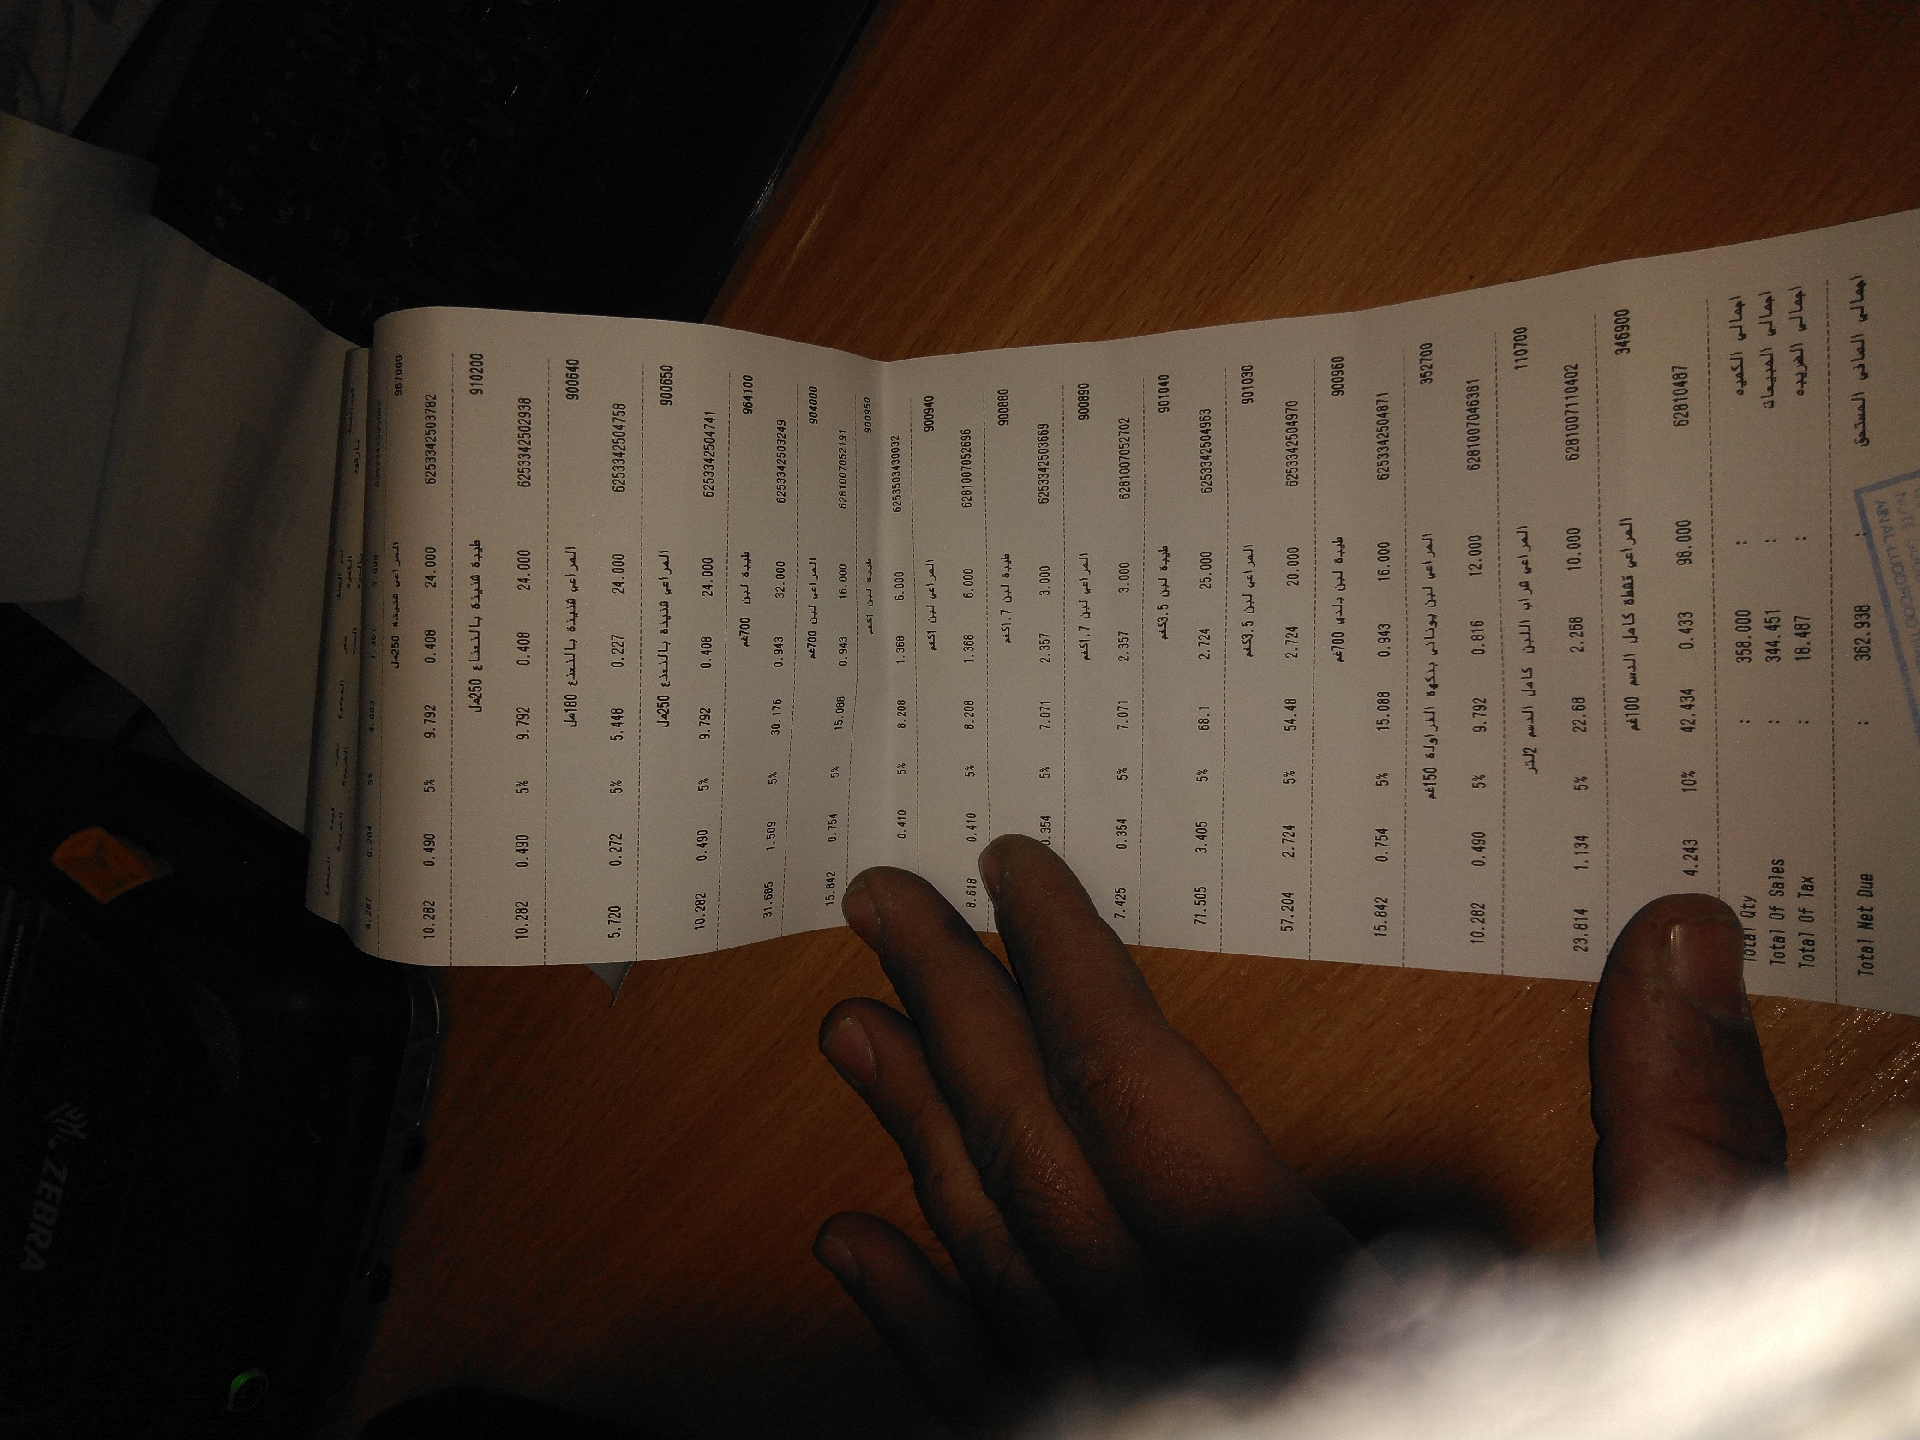 967000
المراعي شنينة 250مل
6253342503782 24.000 0.408 9.792 5% 0.490 10.282
910200
طيبة شنينة بالنعناع 250مل
6253342502938 24.000 0.408 9.792 5% 0.490 10.282
900640
المراعي شنينة بالنعنع 180مل
6253342504758 24.000 0.227 5.448 5% 0.272 5.720
900650
المراعي شنينة بالنعنع 250مل
6253342504741 24.000 0.408 9.792 5% 0.490 10.282
964100
طيبة لبن 700غم
6253342503249 32.000 0.943 30.176 5% 1.509 31.685
904000
المراعي لبن 700غم
6281007052191 16.000 0.943 15.088 5% 0.754 15.842
900950
طيبة لبن 1كغم
6253503430032 6.000 1.368 8.208 5% 0.410
900940
المراعي لبن 1كغم
6281007052696 6.000 1.368 8.208 5% 0.410 8.618
900880
طيبة لبن 1.7كغم
6253342503669 3.000 2.357 7.071 5% 0.354
900890
المراعي لبن 1.7كغم
6281007052702 3.000 2.357 7.071 5% 0.354 7.425
901040
طيبة لبن 3.5كغم
6253342504963 25.000 2.724 68.1 5% 3.405 71.505
901030
المراعي لبن 3.5كغم
6253342504970 20.000 2.724 54.48 5% 2.724 57.204
900960
طيبة لبن بلدي 700غم
6253342504871 16.000 0.943 15.088 5% 0.754 15.842
352700
المراعي لبن يوناني بنكهة الفراولة 150غم
6281007046381 12.000 0.816 9.792 5% 0.490 10.282
110700
المراعي شراب اللبن كامل الدسم 2لتر
6281007110402 10.000 2.268 22.68 5% 1.134 23.814
346900
المراعي قشطة كامل الدسم 100غم
62810487 98.000 0.433 42.434 10% 4.243
اجمالي الكميه : 358.000 : Total Qty
اجمالي المبيعات : 344.451 : Total Of Sales
اجمالي الضريبه : 18.487 : Total Of Tax
اجمالي الصافي المستحق : 362.938 : Total Net Due
ZEBRA